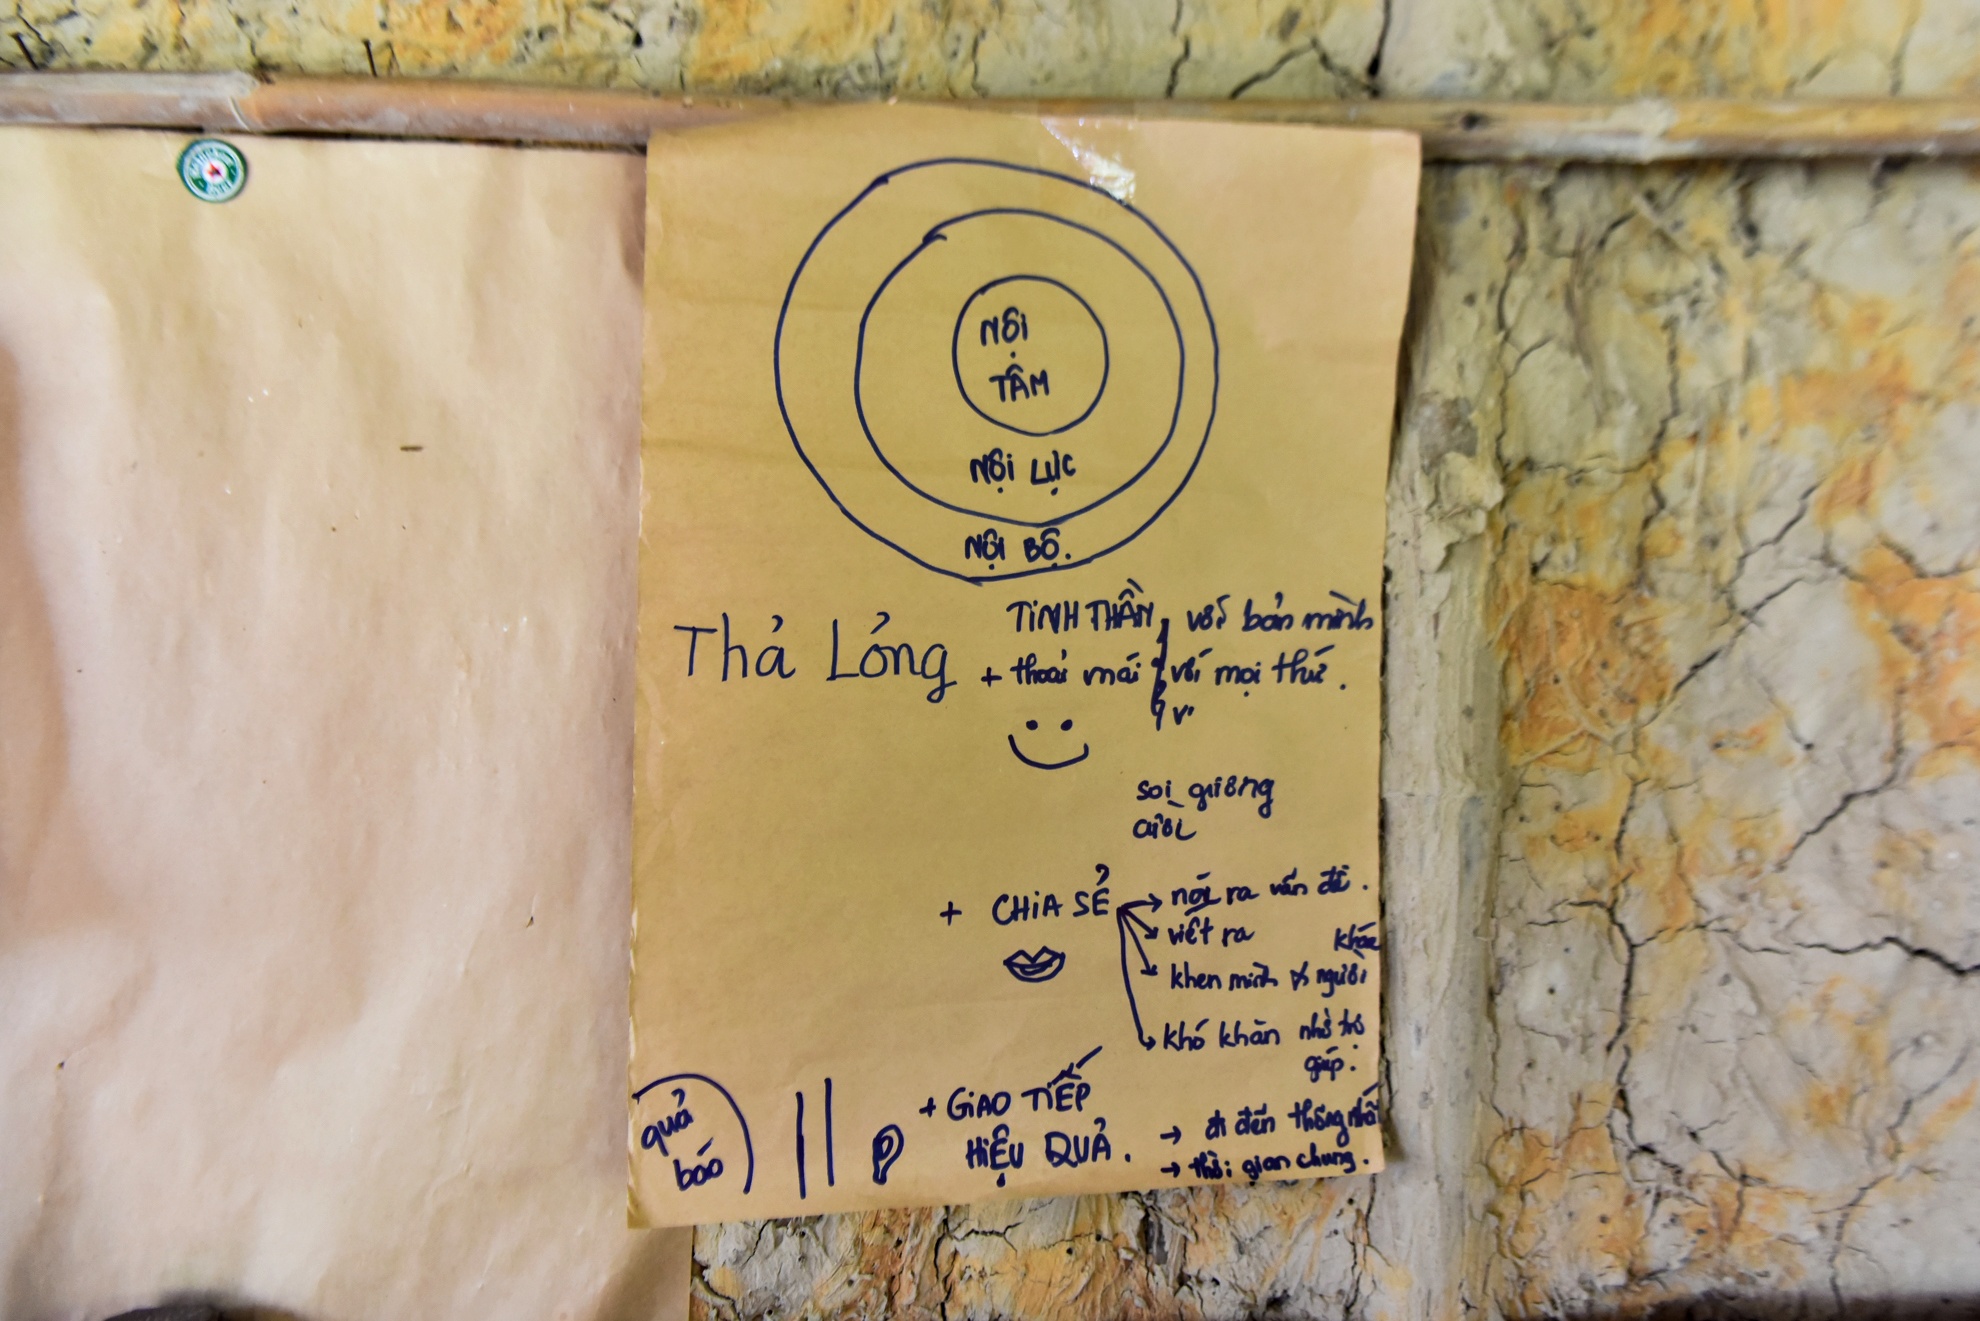 NỘI
TÂM
NỘI LỰC
NỘI BỘ.
Thả Lỏng
TINH THẦN
+ thoải mái
với bản mình
với mọi thứ.
soi gương
cười
+ CHIA SẺ
→ nói ra vấn đề.
→ viết ra
→ khen mình & người khác
→ khó khăn nhờ trợ
giúp.
+ GIAO TIẾP
HIỆU QUẢ.
→ đi đến thống nhất
→ thời gian chung.
quả
báo